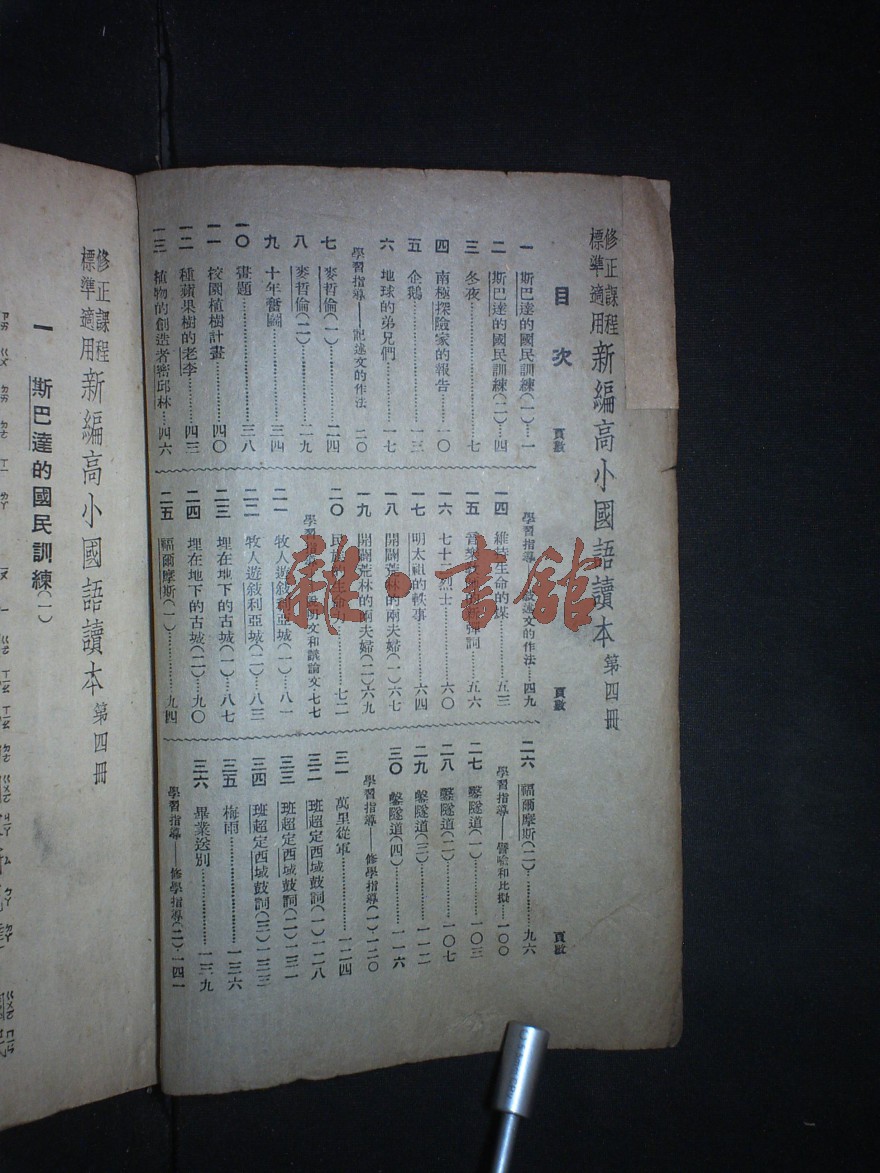 修正課程標準適用 新編高小國語讀本 第四冊
目次
頁數
一 斯巴達的國民訓練(一)……一
二 斯巴達的國民訓練(二)…四
三 冬夜……七
四 南極探險家的報告……一〇
五 企鵝……一三
六 地球的弟兄們……一七
學習指導——記述文的作法 二〇
七 麥哲倫(一)……二四
八 麥哲倫(二)……二九
九 十年奮鬭……三四
一〇 畫題……三八
一一 校園植樹計畫……四〇
一二 種蘋果樹的老李……四三
一三 植物的創造者密邱林…四六
頁數
學習指導 敘述文的作法……四九
一四 維持生命的煤……五三
一五 彈詞……五六
一六 七十二烈士……六〇
一七 明太祖的軼事……六四
一八 開闢荒林的兩夫婦(一)六七
一九 開闢荒林的兩夫婦(二)六九
二〇 民族的生命……七二
學習指導 說明文和議論文…七七
二一 牧人遊敍利亞城(一)…八一
二二 牧人遊敍利亞城(二)…八三
二三 埋在地下的古城(一)…八七
二四 埋在地下的古城(二)…九〇
二五 福爾摩斯(一)……九四
頁數
二六 福爾摩斯(二)……九六
學習指導——譬喻和比擬…一〇〇
二七 鑿隧道(一)……一〇三
二八 鑿隧道(二)……一〇七
二九 鑿隧道(三)……一一二
三〇 鑿隧道(四)……一一六
學習指導——修學指導(一)一二〇
三一 萬里從軍……一二四
三二 班超定西域鼓詞(一)一二八
三三 班超定西域鼓詞(二)一三一
三四 班超定西域鼓詞(三)一三三
三五 梅雨……一三六
三六 畢業送別……一三九
學習指導——修學指導(二)一四一
修正課程標準適用 新編高小國語讀本 第四冊
一 斯巴達的國民訓練(一)
雜·書館